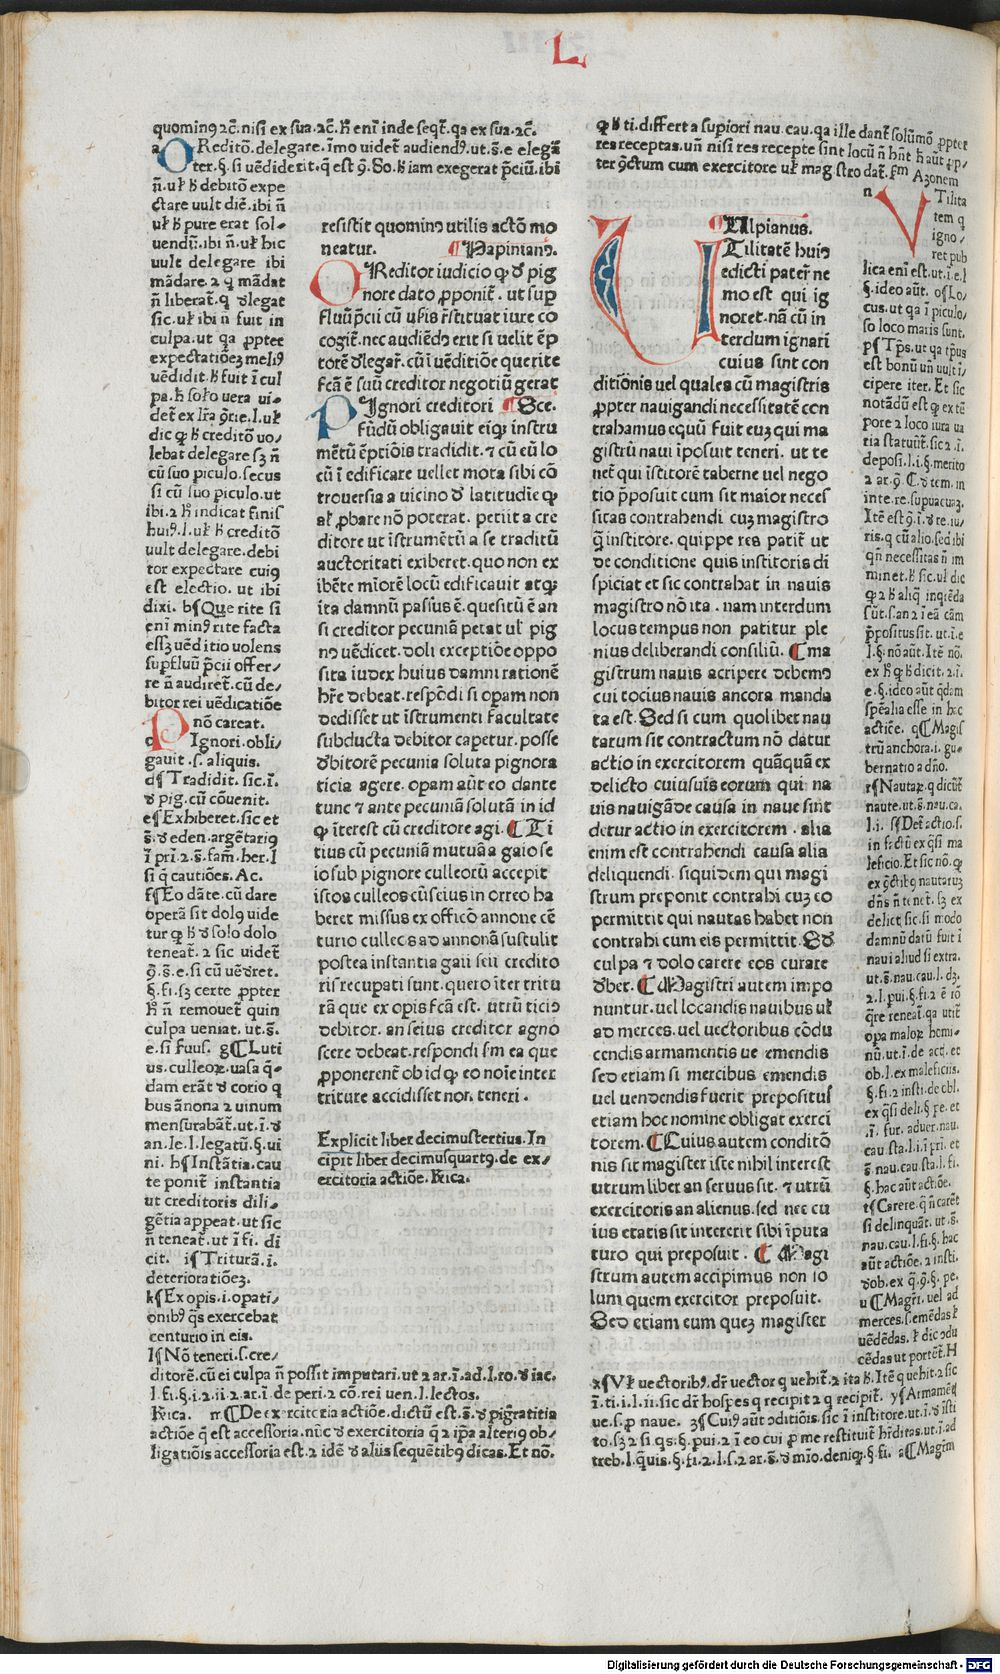 L
quominꝰ ⁊c̄. nisi ex sua. ⁊c̄. h̄ eni᷑ inde seqt᷑. qa ex sua. ⁊c̄.
a Reditō. delegare. i᷑mo uidet᷑ audiendꝰ. ut. s̄. e elegā
ter. §. si uēdiderit. q est ꝯ. So. h̄ iam exegerat p̄ciū. ibi
n̄. uł h̄ debitō expe
ctare uult diē. ibi n̄
uł h̄ pure erat sol-
uendū. ibi n̄. uł hic
uult delegare ibi
mādare. ⁊ q mādat
n̄ liberat᷑. q ꝺlegat
sic. uł ibi n̄ fuit in
culpa. ut qa ꝓpter
expectatiōeꝫ meliꝰ
uēdidit. h̄ fuit i᷑ cul
pa. h̄ solo uera ui-
det᷑ ex lr̄a ꝯrie. l. uł
dic ꝙ h̄ creditō uo/
lebat delegare sꝫ n̄
cū suo piculo. secus
si cū suo piculo. ut
ibi. ⁊ h̄ indicat finis
huiꝰ. l. uł h̄ creditō
uult delegare. debi
tor expectare cuiꝰ
est electio. ut ibi
dixi. b¶Que rite si
eni᷑ minꝰ rite facta
essꝫ uēditio uolens
supfluū p̄cii offer/
re n̄ audiret᷑. cū de/
bitor rei uēdicatiōe
nō careat.
c Ignori. obli/
gauit. s. aliquis.
d¶ Tradidit. sic. i᷑.
ꝺ pig. cū cōuenit.
e¶Exhiberet. sic et
s̄. ꝺ eden. argētariꝰ
i᷑ pri. ⁊. s̄. fam̄. her. l
si q̄ cautiōes. Ac.
f¶Eo dāte. cū dare
operā sit dolꝰ uide
tur ꝙ h̄ ꝺ solo dolo
teneat᷑. ⁊ sic uidet᷑
ꝯ. s̄. e. si cū uēdret.
§. fi. sꝫ certe ꝓpter
h̄ n̄ remouet᷑ quin
culpa ueniat. ut. s̄.
e. si fuus. g¶Luti
us. culleoꝝ. uasa q̄-
dam erāt ꝺ corio q
bus ānona ⁊ uinum
mensurabāt᷑. ut. i᷑. ꝺ
an. le. l. legatū. §. ui
ni. h¶Instātia. cau
te ponit᷑ instantia
ut creditoris dili-
gētia appeat. ut sic
n̄ teneat᷑. ut i᷑ fi. di
cit. i¶Triturā. i.
deterioratiōeꝫ.
k¶Ex opis. i. opati/
onibꝰ q̄s exercebat
centurio in eis.
l¶Nō teneri. s. cre/
ditorē. cū ei culpa n̄ possit imputari. ut ⁊ ar. i᷑. ad. l. ro. ꝺ iac.
l. fi. §. i. ⁊. ii. ⁊ ar. i᷑. de peri. ⁊ cō. rei uen. l. lectos.
Rica. m¶De exercitoria actiōe. dictū est. s̄. ꝺ pigratitia
actiōe q̄ est accessoria. nūc ꝺ exercitoria q̄ ⁊ ip̄a alteriꝰ ob/
ligatiōis accessoria est. ⁊ idē ꝺ aliis sequētibꝰ dicas. Et nō.
resistit quominꝰ utilis actō mo
neatur. ¶Papinianꝰ.
Reditor iudicio ꝙ ꝺ pig
nore dato ꝓponit᷑. ut sup
fluū p̄cii cū usib r̄stituat iure co
cogit᷑. nec audiēdꝰ erit si uelit ēp
torē ꝺlegar᷑. cū i᷑ uēditiōe que rite
fcā ē suū creditor negotiū gerat
Ignori creditori ¶Sce.
fūdū obligauit eiqꝫ instru
mētū ēptiōis tradidit. ⁊ cū eū lo
cū i᷑ edificare uellet mota sibi cō
trouersia a uicino ꝺ latitudīe ꝙ
ał ꝓbare nō poterat. petiit a cre
ditore ut i᷑strumētū a se traditū
auctoritati exiberet. quo non ex
ibēte mīorē locū edificauit atqꝫ
ita damnū passus ē. quesitū ē an
si creditor pecuniā petat uł pig
nꝰ uēdicet. doli exceptiōe oppo
sita iudex huius damni rationē
hr̄e debeat. respōdi si opam non
dedisset ut i᷑strumenti facultate
subducta debitor capetur. posse
ꝺbitorē pecunia soluta pignora
ticia agere. opam aūt eo dante
tunc ⁊ ante pecuniā solutā in id
ꝙ i᷑terest cū creditore agi. ¶Ti
tius cū pecuniā mutuā a gaio se
io sub pignore culleorū accepit
istos culleos cū seius in orreo ha
beret missus ex officō annone cē
turio culleos ad annonā sustulit
postea instantia gaii seii credito
ris recupati sunt. quero i᷑ter tritu
rā que ex opis fcā est. utrū ticiꝰ
debitor. an seius creditor agno
scere debeat. respondi sm ea que
ꝓponerent᷑ ob id ꝙ eo noīe inter
triture accidisset non. teneri.
Explicit liber decimustertius. In
cipit liber decimusquartꝰ. de ex/
ercitoria actiōe. Rica.
ꝙ h̄ ti. differt a supiori nau. cau. qa ille dant᷑ solūmō ꝓpter
res receptas. un̄ nisi res recepte sint locū n̄ hn̄t h̄ aūt ꝓp/
ter ꝯctum cum exercitore uł mag̃stro dat᷑. sm Azonem
Ulpianus.
Tilitatē huiꝰ
edicti patere ne
mo est qui ig
noret. nā cū in
terdum ignari
cuius sint con
ditiōnis uel quales cū magistris
ꝓpter nauigandi necessitatē con
trahamus equū fuit euꝫ qui ma
gistrū naui i᷑posuit teneri. ut te
net᷑ qui i᷑stitorē taberne uel nego
tio p̄posuit cum sit maior neces
sitas contrahendi cuꝫ magistro
q̄ institore. quippe res patit᷑ ut
de conditione quis institoris di᷑
spiciat et sic contrahat in nauis
magistro nō ita. nam interdum
locus tempus non patitur ple
nius deliberandi consiliū. ¶Ma
gistrum nauis accipere debemꝰ
cui tocius nauis ancora manda
ta est. Sed si cum quolibet nau
tarum sit contractum nō datur
actio in exercitorem quāquā ex
delicto cuiusuis eorum qui na
uis nauigāde causa in naue sint
detur actio in exercitorem. alia
enim est contrahendi causa alia
deliquendi. siquidem qui magi
strum preponit contrahi cuꝫ eo
permittit qui nautas habet non
contrahi cum eis permittit. Sꝺ
culpa ⁊ dolo carere eos curare
ꝺbet. ¶Magistri autem impo
nuntur. uel locandis nauibus uł
ad merces. uel uectoribus cōdu
cendis armamentis ue emendis
sed etiam si mercibus emendis
uel uendendis fuerit prepositus
etiam hoc nomine obligat exerci
torem. ¶Cuius autem conditō
nis sit magister iste nihil interest
utrum liber an seruus sit. ⁊ utrū
exercitoris an alienus. sed nec cu
ius etatis sit intererit sibi i᷑puta
turo qui preposuit. ¶Magi
strum autem accipimus non so
lum quem exercitor preposuit.
Sed etiam eum queꝫ magister
n Tilita
tem q
igno/
ret pub
lica eni᷑ est. ut. i. e. l
§. ideo aūt. o¶Lo/
cus. ut qa i᷑ piculo/
so loco maris sunt.
p¶Tp̄s. ut qa tp̄us
est bonū un̄ uult i᷑/
cipere iter. Et sic
notādū est ꝙ ex tē
pore ⁊ loco iura ua
ria statuūt᷑. sic ⁊. i᷑.
deposi. l. i. §. merito
inte. re. supuacuaꝫ.
ris. q cū alio. sed ibi
qn̄ necessitas n̄ im
minet. h̄ sic. uł dic
p̄positus sit. ut. i᷑. e
l. §. nō aūt. Itē nō.
ex h̄ ꝙ h̄ dicit. ⁊. i᷑.
e. §. ideo aūt q̄dam
sp̄ealia esse in hac
actiōe. q¶Magis
trū anchora. i. gu-
bernatio a dn̄o.
r¶Nautaꝝ. q dicūt᷑
naute. ut. s̄. nau. ca.
l. i. s¶Det᷑ actio. s.
in factū ex q̄si ma
leficio. Et sic nō. ꝙ
ex ꝯctibꝰ nautaruꝫ
dn̄s n̄ tenet᷑. sꝫ ex
delict᷑ sic. si modo
damnū datū fuit i᷑
naui aliud si extra.
ut. s̄. nau. cau. l. dꝫ.
⁊. l. pui. §. fi. ⁊ ē rō
q̄re teneat᷑. qa utit᷑
opa maloꝝ homi-
nū. ut. i᷑. de act. et
ob. l. ex maleficiis.
§. fi. ⁊ insti. de obl.
ex q̄si deli. §. pe. et
.i᷑. fur. aduer. nau.
cau sta. l. i. i᷑ pri. et
s̄. nau. cau sta. l. fi.
§. hac aūt actiōe.
t¶Carere. q̄ n̄ caret᷑
si delinquāt. ut. s̄.
nau. cau. l. fi. §. hac
aūt actiōe. ⁊ insti.
ꝺ ob. ex q̄. ꝯ. §. pe.
u¶Magr̄i. uel ad
merces. s. emēdas ł
uēdēdas. ł dic ꝯdu
cēdas ut portēt᷑. H
x¶Uł uectoribꝰ. dr̄ uector q uehit᷑. ⁊ ita h̄. Itē q uehit. ⁊ sic
i᷑. ti. i. l. ii. sic dr̄ hospes q recipit ⁊ q recipit᷑. y¶Armamēt᷑
ue. s. p naue. z¶Cuiꝰ aūt ꝯditiōis. sic i᷑ institore. ut. i᷑. ꝺ i᷑sti
to. sꝫ ⁊ si. qs. §. pui. ⁊ i᷑ eo cui p me restituit᷑ hr̄ditas. ut. i᷑. ad
treb. l. quis. §. fi. ⁊. l. s. ⁊ ar. s̄. ꝺ mīo. deniqꝫ. §. fi. a¶Magr̄m
Digitalisierung gefördert durch die Deutsche Forschungsgemeinschaft - DFG